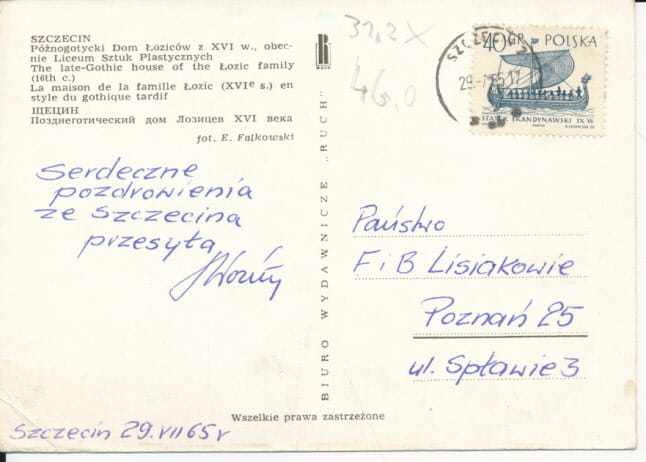 SZCZECIN
Późnogotycki Dom Łoziców z XVI w., obec-
nie Liceum Sztuk Plastycznych
The late-Gothic house of the Łozic family
(16th c.)
La maison de la famille Łozic (XVIe s.) en
style du gothique tardif
ЩЕЦИН
Позднеготический дом Лозицев XVI века
fot. E. Falkowski
Serdeczne
pozdrowienia
ze Szczecina
przesyła
Szczecin 29.VII 65 r
BIURO WYDAWNICZE „RUCH”
Wszelkie prawa zastrzeżone
31,2X
46.0
40 GR POLSKA
SZCZECIN 2
STATEK SKANDYNAWSKI IX W.
Państwo
F i B Lisiakowie
Poznań 25
ul. Spławie 3